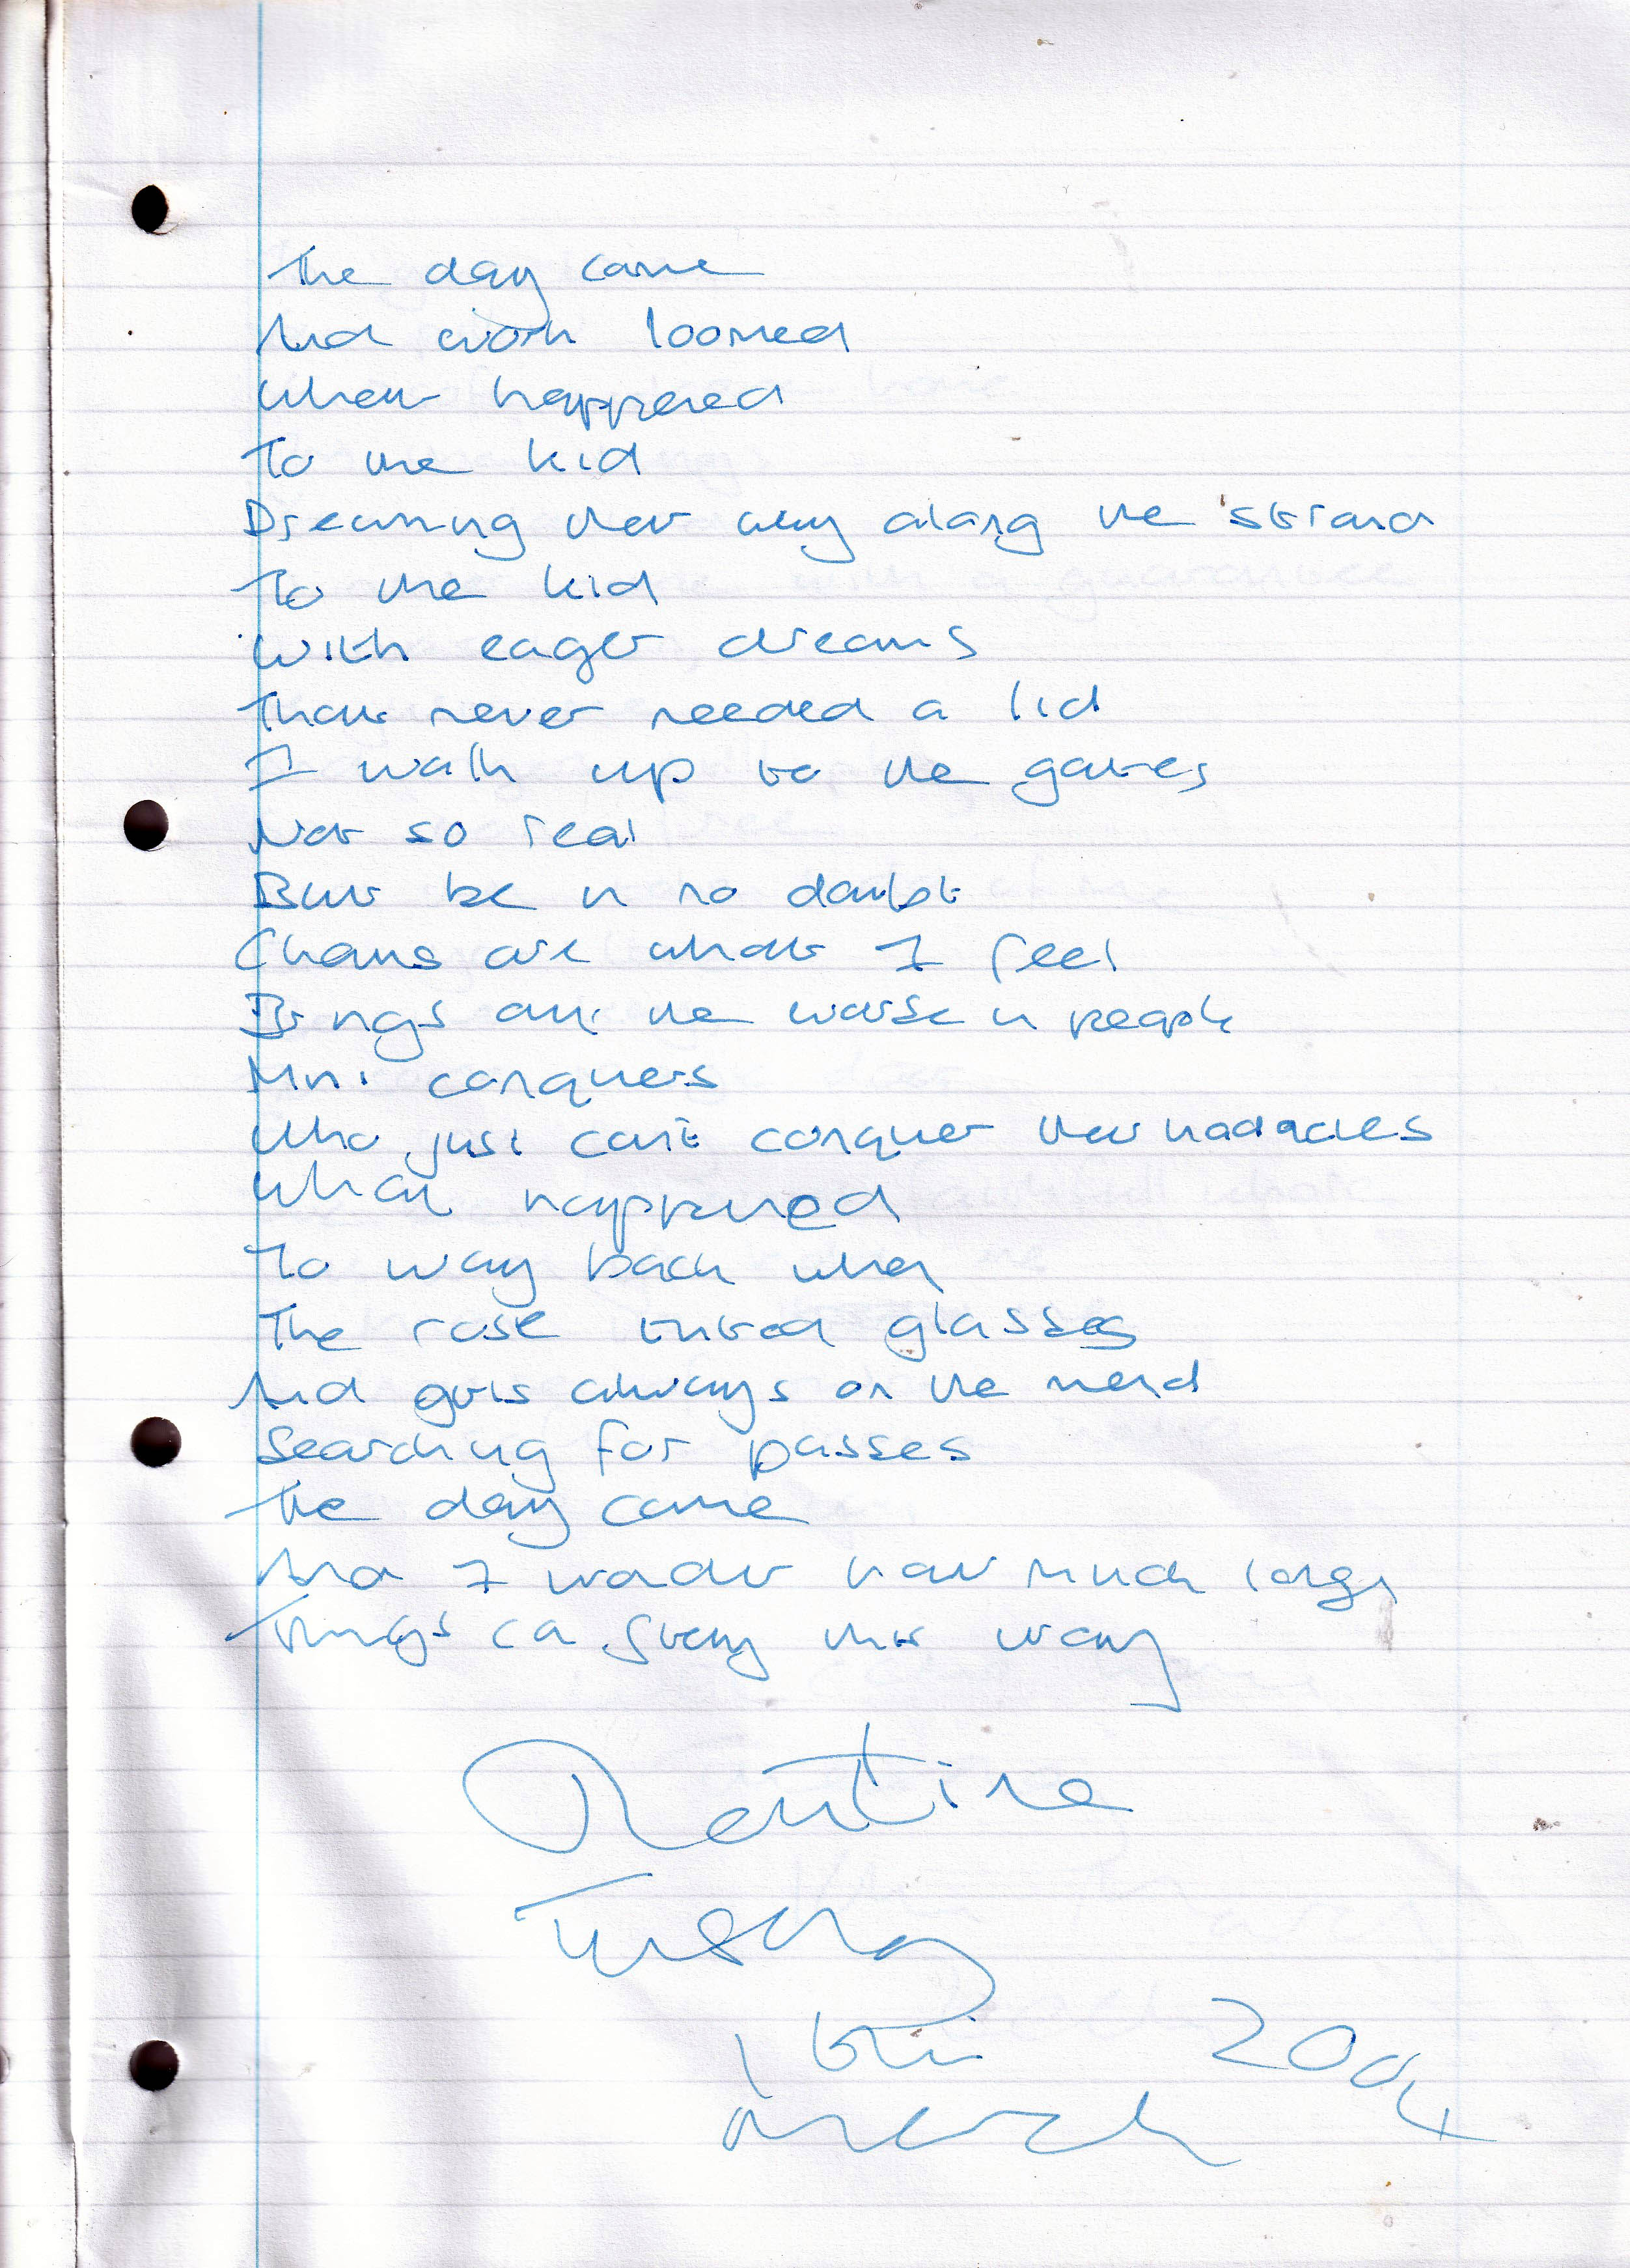 The day came
And work loomed
What happened
To the kid
Dreaming their way along the strand
To the kid
With eager dreams
That never needed a lid
I walk up to the gates
Not so real
But be in no doubt
Chains are what I feel
Brings out the worse in people
Mini conquers
Who just can't conquer their
What happened
To way back when
The rose tinted glasses
And girls always on the mend
Searching for passes
The day came
And I wonder how much longer
Things can stay this way
Routine
Tuesday
16th 2004
March